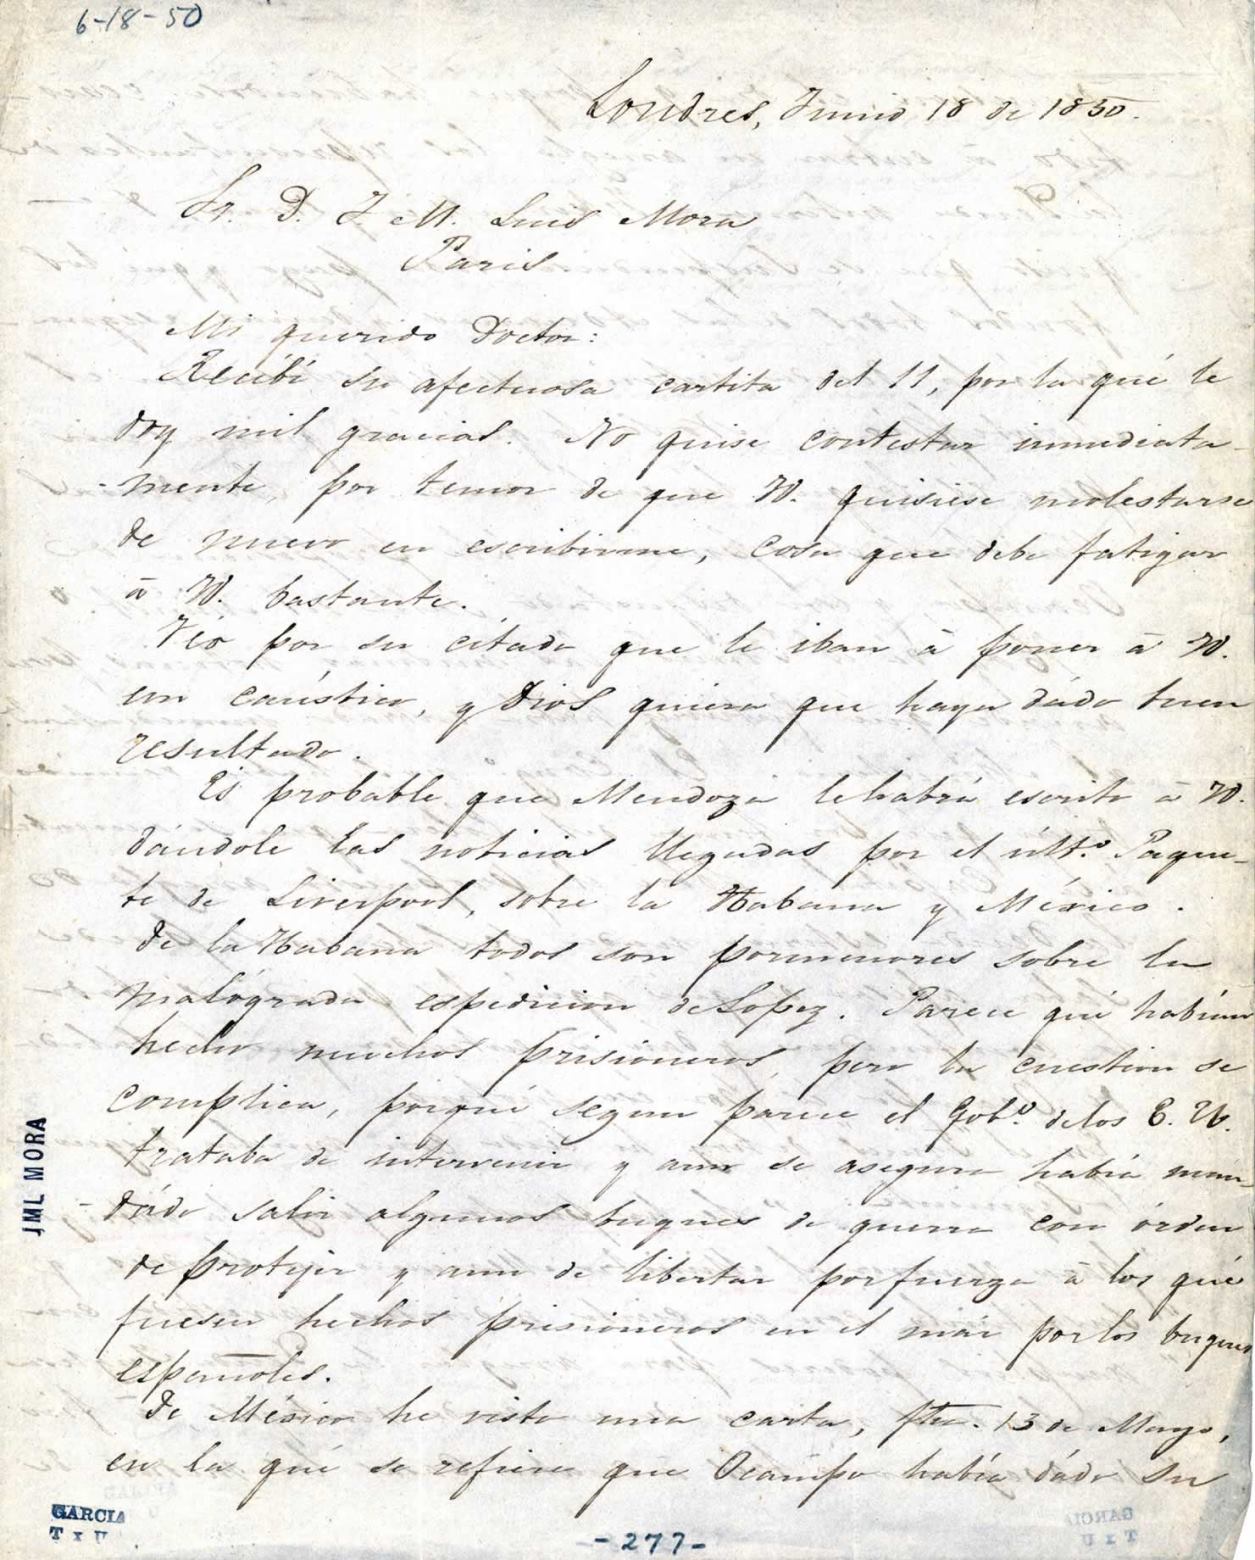 6-18-50
Londres, Junio 18 de 1850.
Sr. D. J. M. Luis Mora
Paris
Mi querido Doctor:
Recíbí su afectuosa cartita del 11, por la qué le
doy mil gracias. No quise contestar inmediata-
-mente, por temor de que V. quisiese molestarse
de nuevo en escribirme, cosa que debe fatigar
á V. bastante.
Véo por su cítada que le iban á poner á V.
un caústico, y Dios quiera que haya dádo buen
resultado.
Es probable que Mendoza le habrá escrito á V.
dándole las noticias llegadas por el últº. Paque-
te de Liverpool, sobre la Habana y México.
De la Habana todos son pormenores sobre la
malógrada espedicion de Lopez. Parece qué habían
hecho muchos prisioneros, pero la cuestion se
complica, porqué segun parece el Gobº. de los E. U.
trataba de intervenir y aun se asegura había man-
-dádo salir algunos buques de guerra con órden
de protejer y aun de libertar por fuerza á los qué
fuesen hechos prisioneros en el már por los buques
españoles.
De México he visto una carta, fha. 13 de Mayo,
en la qué se refiere que Ocampo había dádo su
JML MORA
GARCIA
-277-